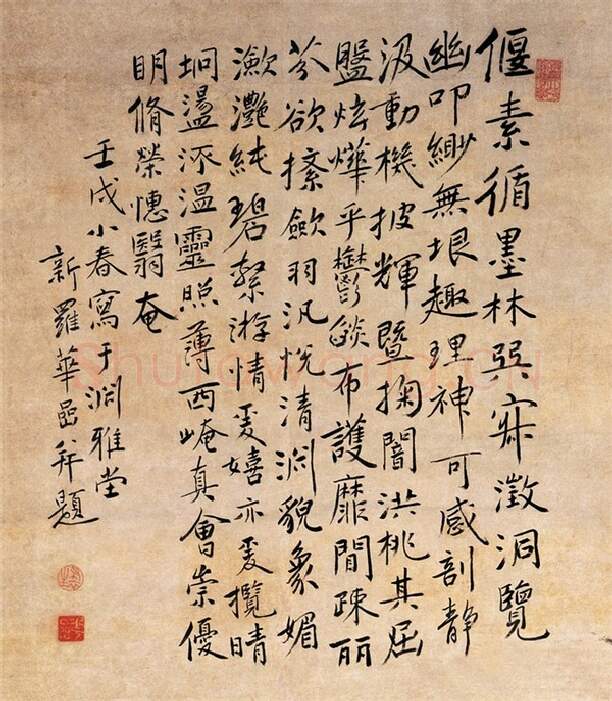 偃素循墨林巽寂澂洞覽
幽叩緲無垠趣理神可感剖静
汲動機披輝暨掬闇洪桃其屈
盤炫燁乎鬱燄布護靡間疎丽
芬欲歛羽汎悅清渊貌象媚
瀲灧純碧繫游情爰嬉亦爰攬晴
坰盪沵温靈照薄西崦真會崇優
明脩榮憓翳奄
壬戌小春寫于渊雅堂
新羅華喦并題